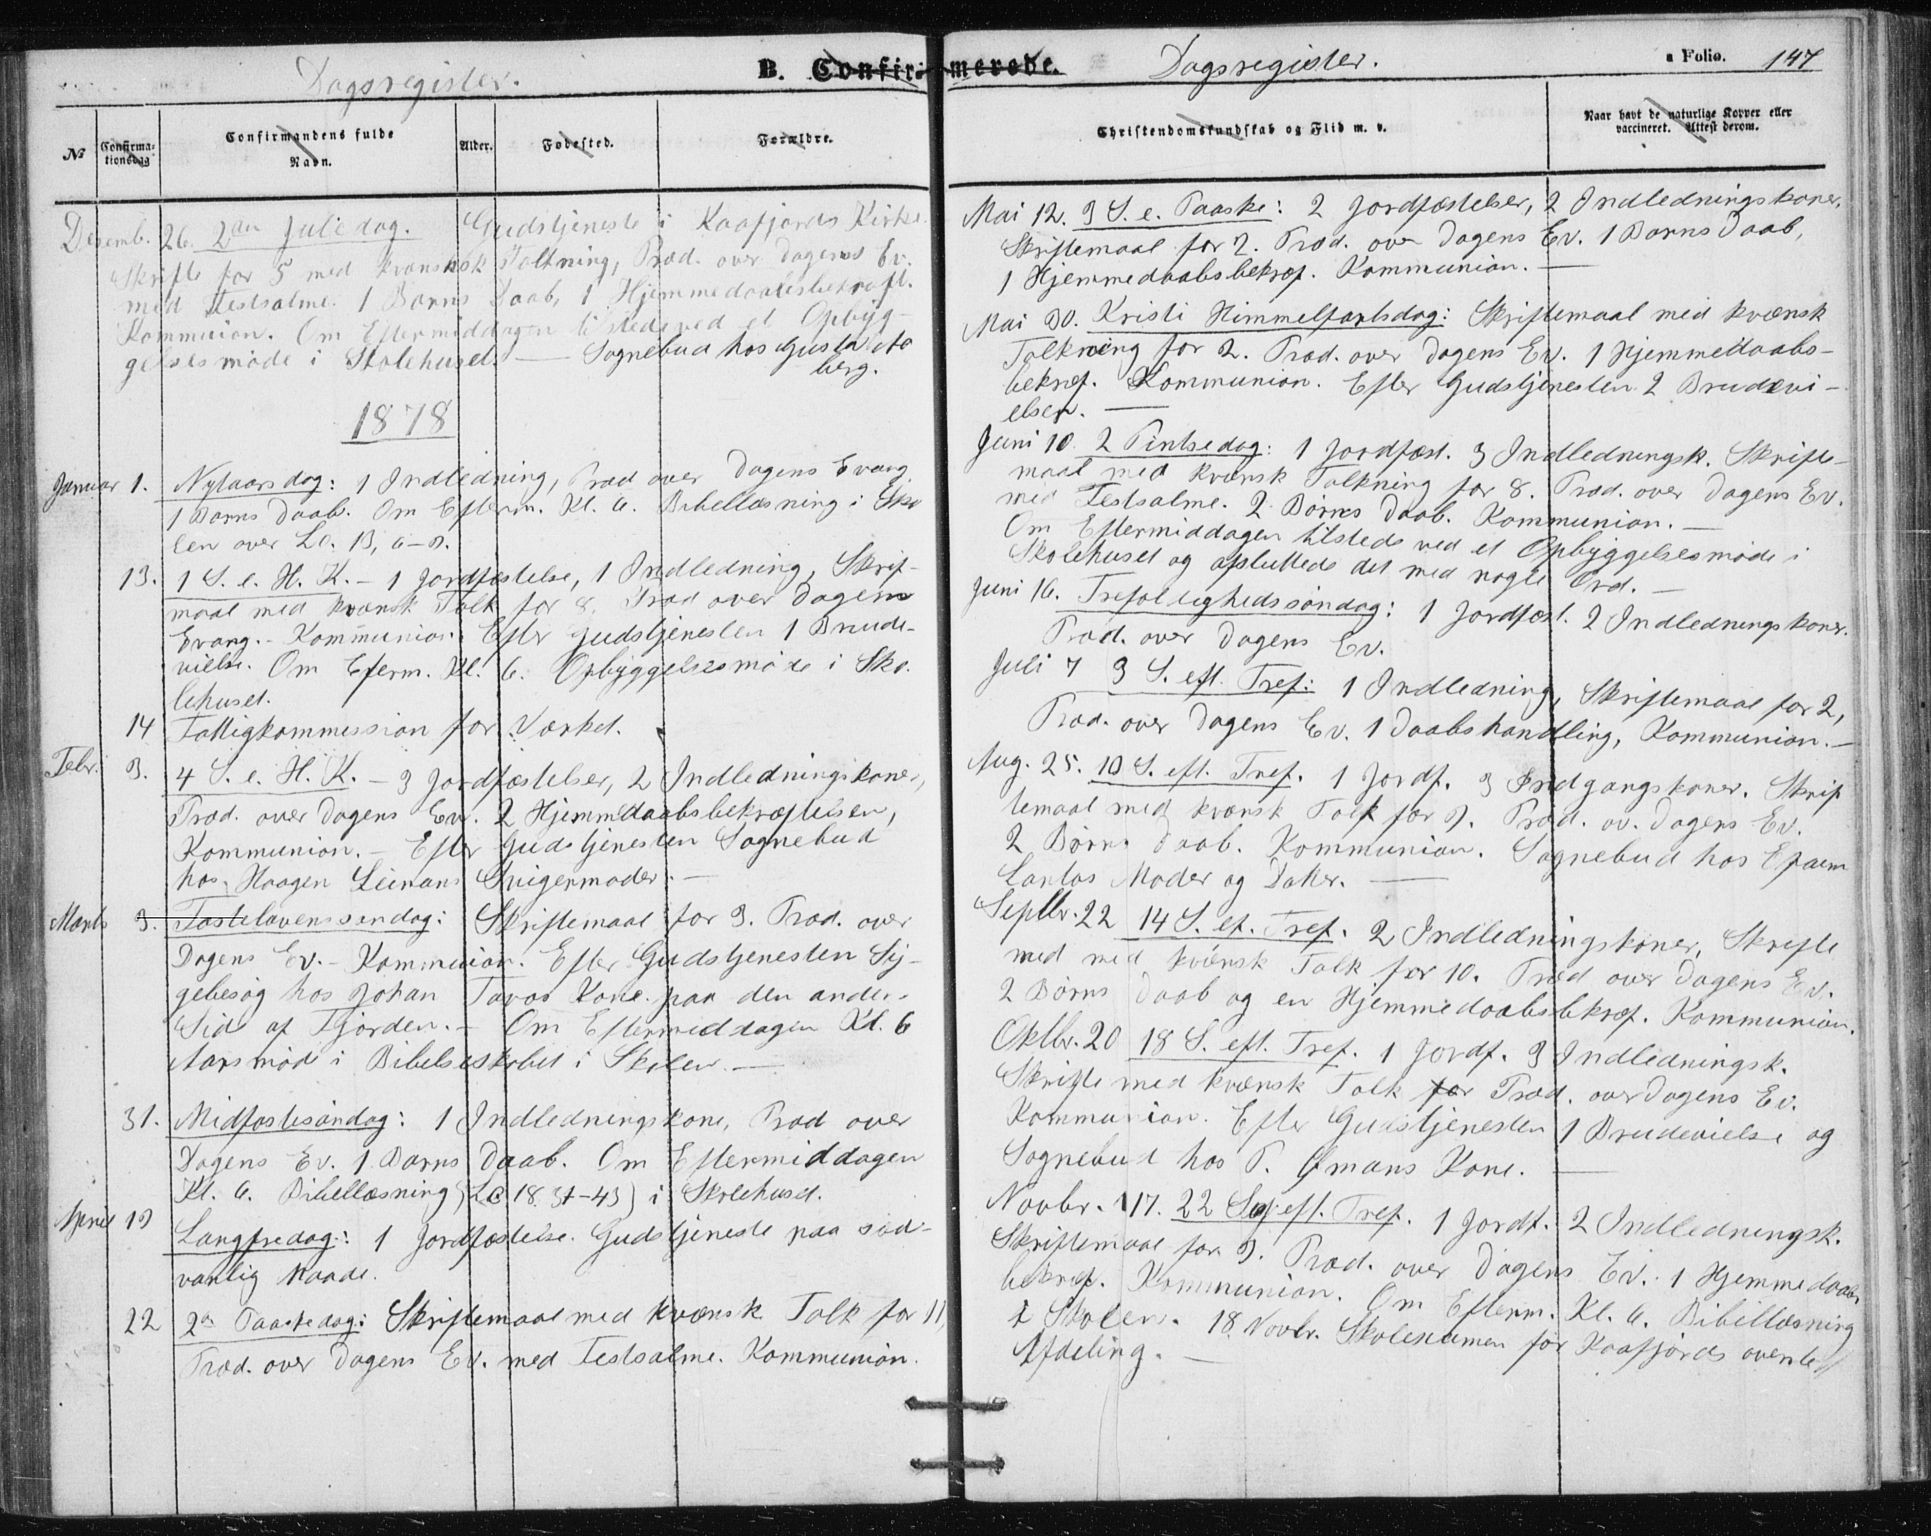 Dagsregister.
B. Confirmerede.
Dagsregister.
Folio. 147
№
Confirmationsdag
Confirmandens fulde Navn.
Alder.
Fødested.
Forældre.
Christendomskundskab og Flid m. v.
Naar havt de naturlige Kopper eller vaccineret. Attest derom.
Desemb. 26. 2den Juledag. Gudstjeneste i Kaafjords Kirke.
Skrifte for 5 med kvænsk Tolkning, Præd. over Dagens Ev.
med Festsalme. 1 Barns Daab, 1 Hjemmedaabsbekræft.
Kommunion. Om Eftermiddagen tilstede ved et Opbyg-
gelsesmøde i Skolehuset. — Sognebud hos Gusta
berg.
1878
Januar 1. Nytaarsdag: 1 Indledning, Præd over Dagens Evang.
1 Barns Daab. Om Efterm. Kl. 6. Bibellæsning i Sko
len over Lc. 13, 6-9.
13. 1 S. e. H. K. – 1 Jordfæstelse, 1 Indledning, Skrif-
maal med kvænsk Tolk for 8. Præd over Dagens
Evang. – Kommunion. Efter Gudstjenesten 1 Brude-
vielse. Om Efterm. Kl. 6. Opbyggelsesmøde i Sko-
lehuset.
14 Fattigkommission for Værket.
Febr. 3. 4 S. e. H. K. – 3 Jordfæstelser, 2 Indledningskoner,
Præd. over Dagens Ev. 2 Hjemmedaabsbekræftelser,
Kommunion. – Efter Gudstjenesten Sognebud
hos Haagen Leinans Svigermoder. —
Marts 3. Fastelavenssøndag: Skriftemaal for 3. Præd. over
Dagens Ev. – Kommunion. Efter Gudstjenesten Sy-
gebesøg hos Johan Tavos Kone paa den anden
Side af Fjorden. – Om Eftermiddagen Kl. 6
Aarsmøde i Bibelselskabet i Skolen. —
31. Midfastesøndag: 1 Indledningskone, Præd over
Dagens Ev. 1 Barns Daab. Om Eftermiddagen
Kl. 6. Bibellæsning (Lc 18. 31-43) i Skolehuset.
April 19 Langfredag: 1 Jordfæstelse. Gudstjeneste paa sæd-
vanlig Maade.
22 2n Paaskedag: Skriftemaal med kvænsk Tolk for 11,
Præd. over Dagens Ev. med Festsalme. Kommunion.
Mai 12. 3 S. e. Paaske: 2 Jordfæstelser, 2 Indledningskoner,
Skriftemaal for 2. Præd. over Dagens Ev. 1 Barns Daab,
1 Hjemmedaabsbekræf. Kommunion. —
Mai 30. Kristi Himmelfartsdag: Skriftemaal med kvænsk
Tolkning for 2. Præd. over Dagens Ev. 1 Hjemmedaabs-
bekræf. Kommunion. Efter Gudstjenesten 2 Brudevi-
elser. —
Juni 10. 2 Pintsedag: 1 Jordfæst. 3 Indledningsk. Skrifte-
maal med kvænsk Tolkning for 8. Præd. over Dagens Ev.
med Festsalme. 2 Børns Daab. Kommunion. —
Om Eftermiddagen tilstede ved et Opbyggelsesmøde i
Skolehuset og afsluttede det med nogle Ord. —
Juni 16. Trefoldighedssøndag: 1 Jordfæst. 2 Indledningskoner.
Præd. over Dagens Ev.
Juli 7 3 S. eft. Tref: 1 Indledning, Skriftemaal for 2,
Præd. over Dagens Ev. 1 Daabshandling, Kommunion. —
Aug. 25. 10 S. eft. Tref. 1 Jordf. 3 Indgangskoner. Skrif
temaal med kvænsk Tolk for 9. Præd. ov. Dagens Ev.
2 Børns Daab. Kommunion. Sognebud hos Efraem
Lantos Moder og Datter. —
Septbr. 22 14 S. ef. Tref. 2 Indledningskoner, Skrifte
med med kvænsk Tolk for 10. Præd over Dagens Ev.
2 Børns Daab og en Hjemmedaabsbekræf. Kommunion.
Oktbr. 20 18 S. eft. Tref. 1 Jordf. 3 Indledningsk.
Skrifte med kvænsk Tolk for Præd. over Dagens Ev.
Kommunion. Efter Gudstjenesten 1 Brudevielse og
Sognebud hos P. Kone. —
Novbr. 17. 22 S. eft. Tref. 1 Jordf. 2 Indledningsk.
Skriftemaal for 9. Præd. over Dagens Ev. 1 Hjemmedaabs
bekræf. Kommunion. Om Efterm. Kl. 6. Bibellæsning
i Skolen. 18 Novbr. Skolexamen for Kaafjords øverste
Afdeling. —